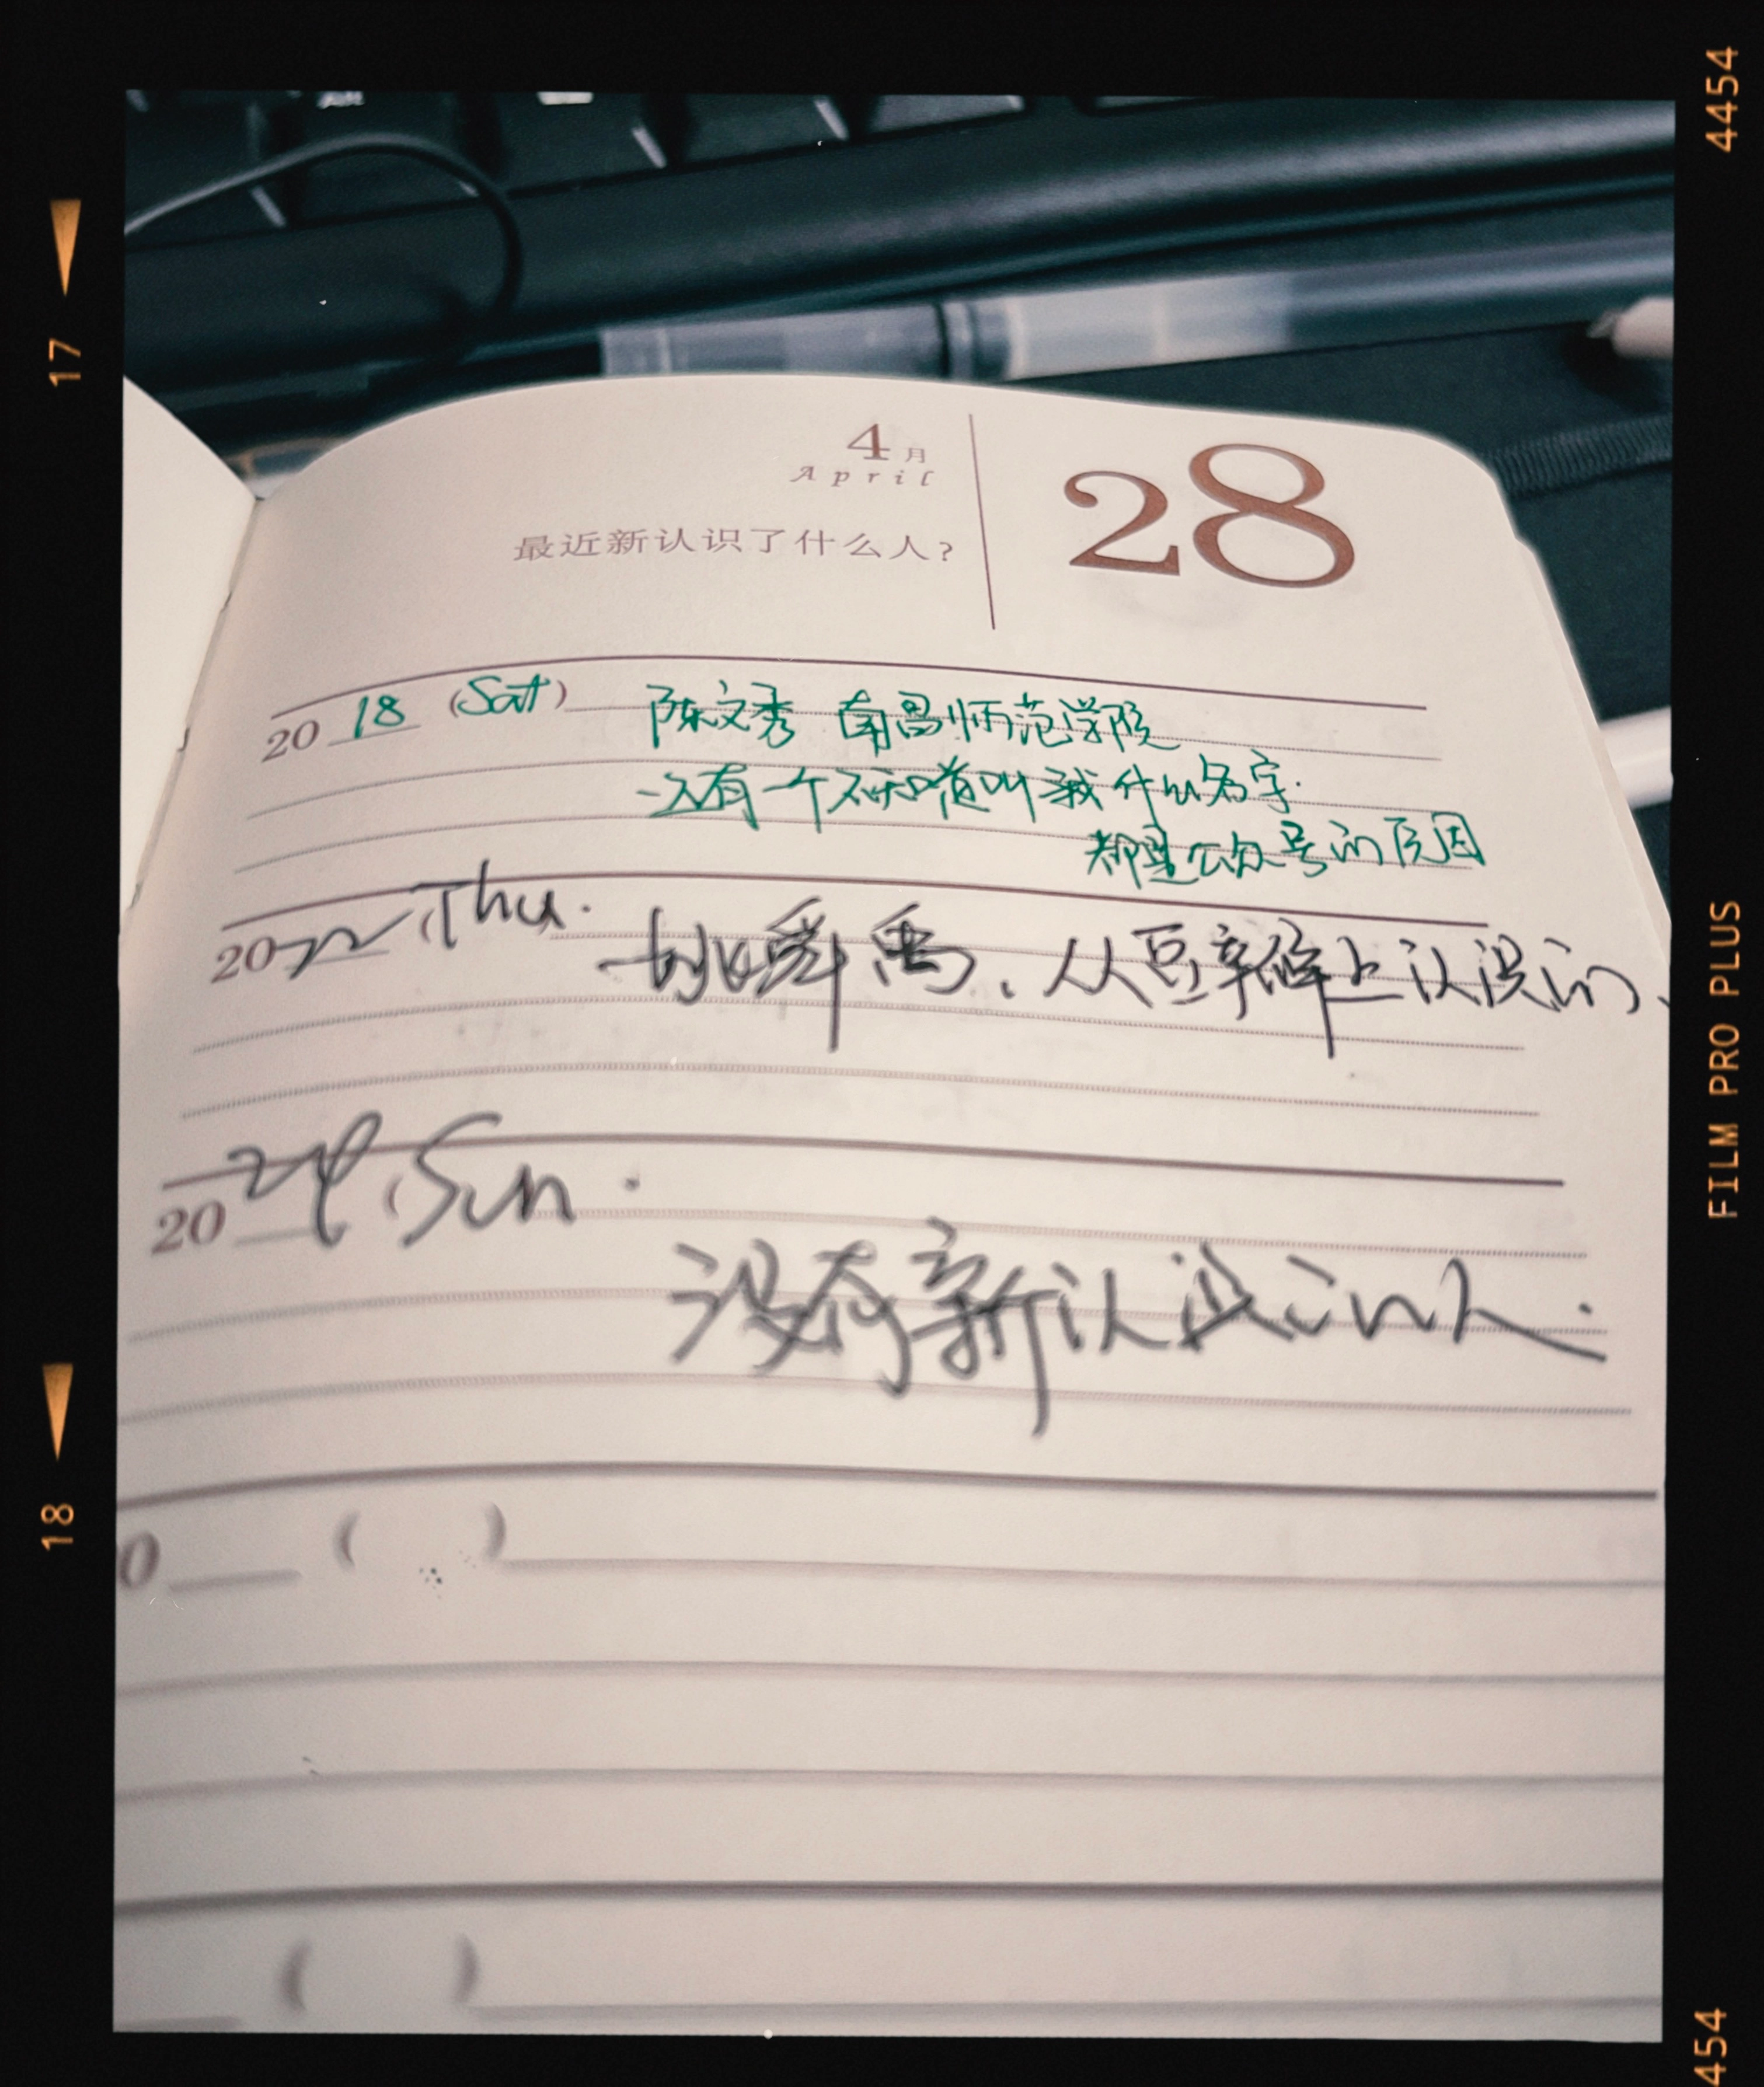 4454
17
4月
April
28
最近新认识了什么人?
2018 (Sat) 陈文秀 南昌师范学院
还有一个不知道叫我什么名字.
都是公众号的原因
2022 (Thu. 姚舜禹、从豆辛磨上认识的、
FILM PRO PLUS
2024 (Sun.
没有新认识的人.
18
0 ( )
( )
454